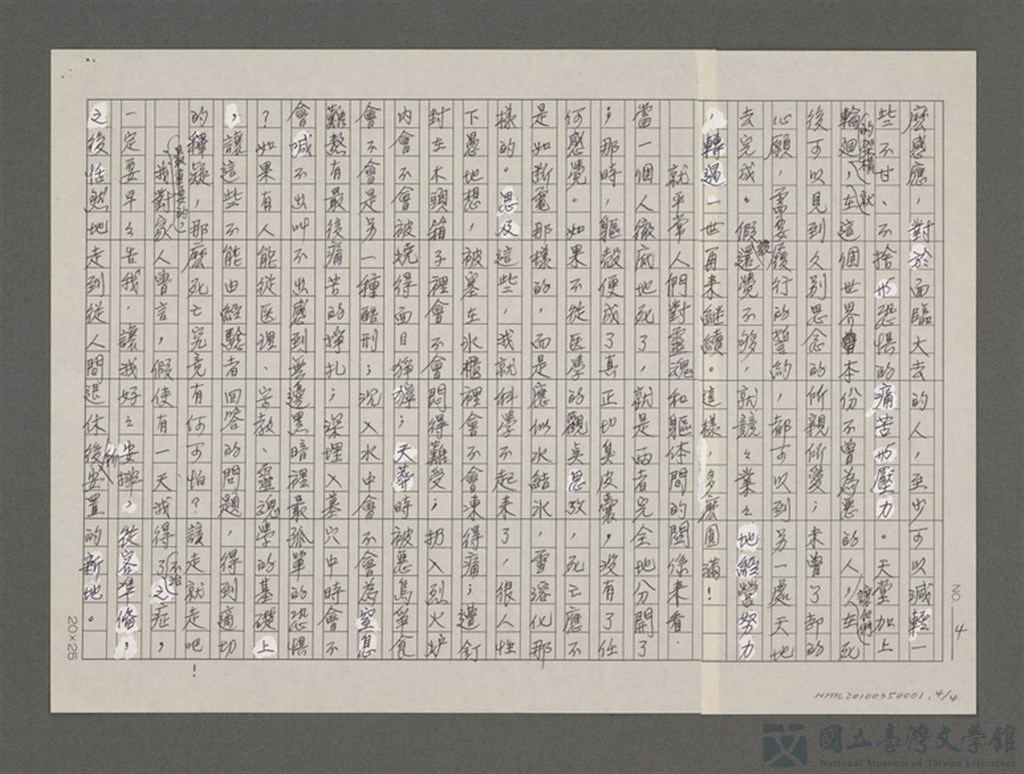 麼感應，對於面臨大去的人，至少可以減輕一
些不甘、不捨或恐懼的痛苦或壓力。天堂加上
輪迴的架構，就在這個世界本份不曾為惡的人，讓他們在死
後可以見到久別思念的所親所愛；未曾了卻的
心願，需要履行的誓約，都可以到另一處天地
去完成。假設還覺不夠，就兢々業々地經營努力
，轉過一世再來繼續。這樣，多麼圓滿！
就平常人們對靈魂和軀体間的關係來看，
當一個人徹底地死了，就是兩者完全地分開了
；那時，軀殼便成了真正切臭皮囊，沒有了任
何感覺。如果不從医學的觀點思攷，死亡應不
是如斷電那樣的，而是應似水結氷，雪溶化那
樣的。思及這些，我就科學不起來了，很人性
下愚地想，被塞在氷櫃裡會不會凍得痛；遭釘
封在木頭箱子裡會不會悶得難受；扔入烈火炉
內會不會被燒得面目猙獰；天葬時被惡鳥爭食
會不會是另一種酷刑；沉入水中會不會為窒息
難熬有最後痛苦的掙扎；深埋入墓穴中時會不
會喊不出叫不出感到無邊黑暗裡最孤單的恐懼
？如果有人能從医理、宗教、靈魂學的基礎上
，讓這些不能由經驗者回答的問題，得到適切
的釋疑，那麼死亡究竟有何可怕？該走就走吧！
最重要的，我對家人曾言，假使有一天我得了不治之症，
一定要早々告我，讓我好々安排，從容準備，
之後恬然地走到從人間退休後所安置的新地。
30—4
20×25
NMTL20100350001，4/4
國立臺灣文學館
National Museum of Taiwan Literature